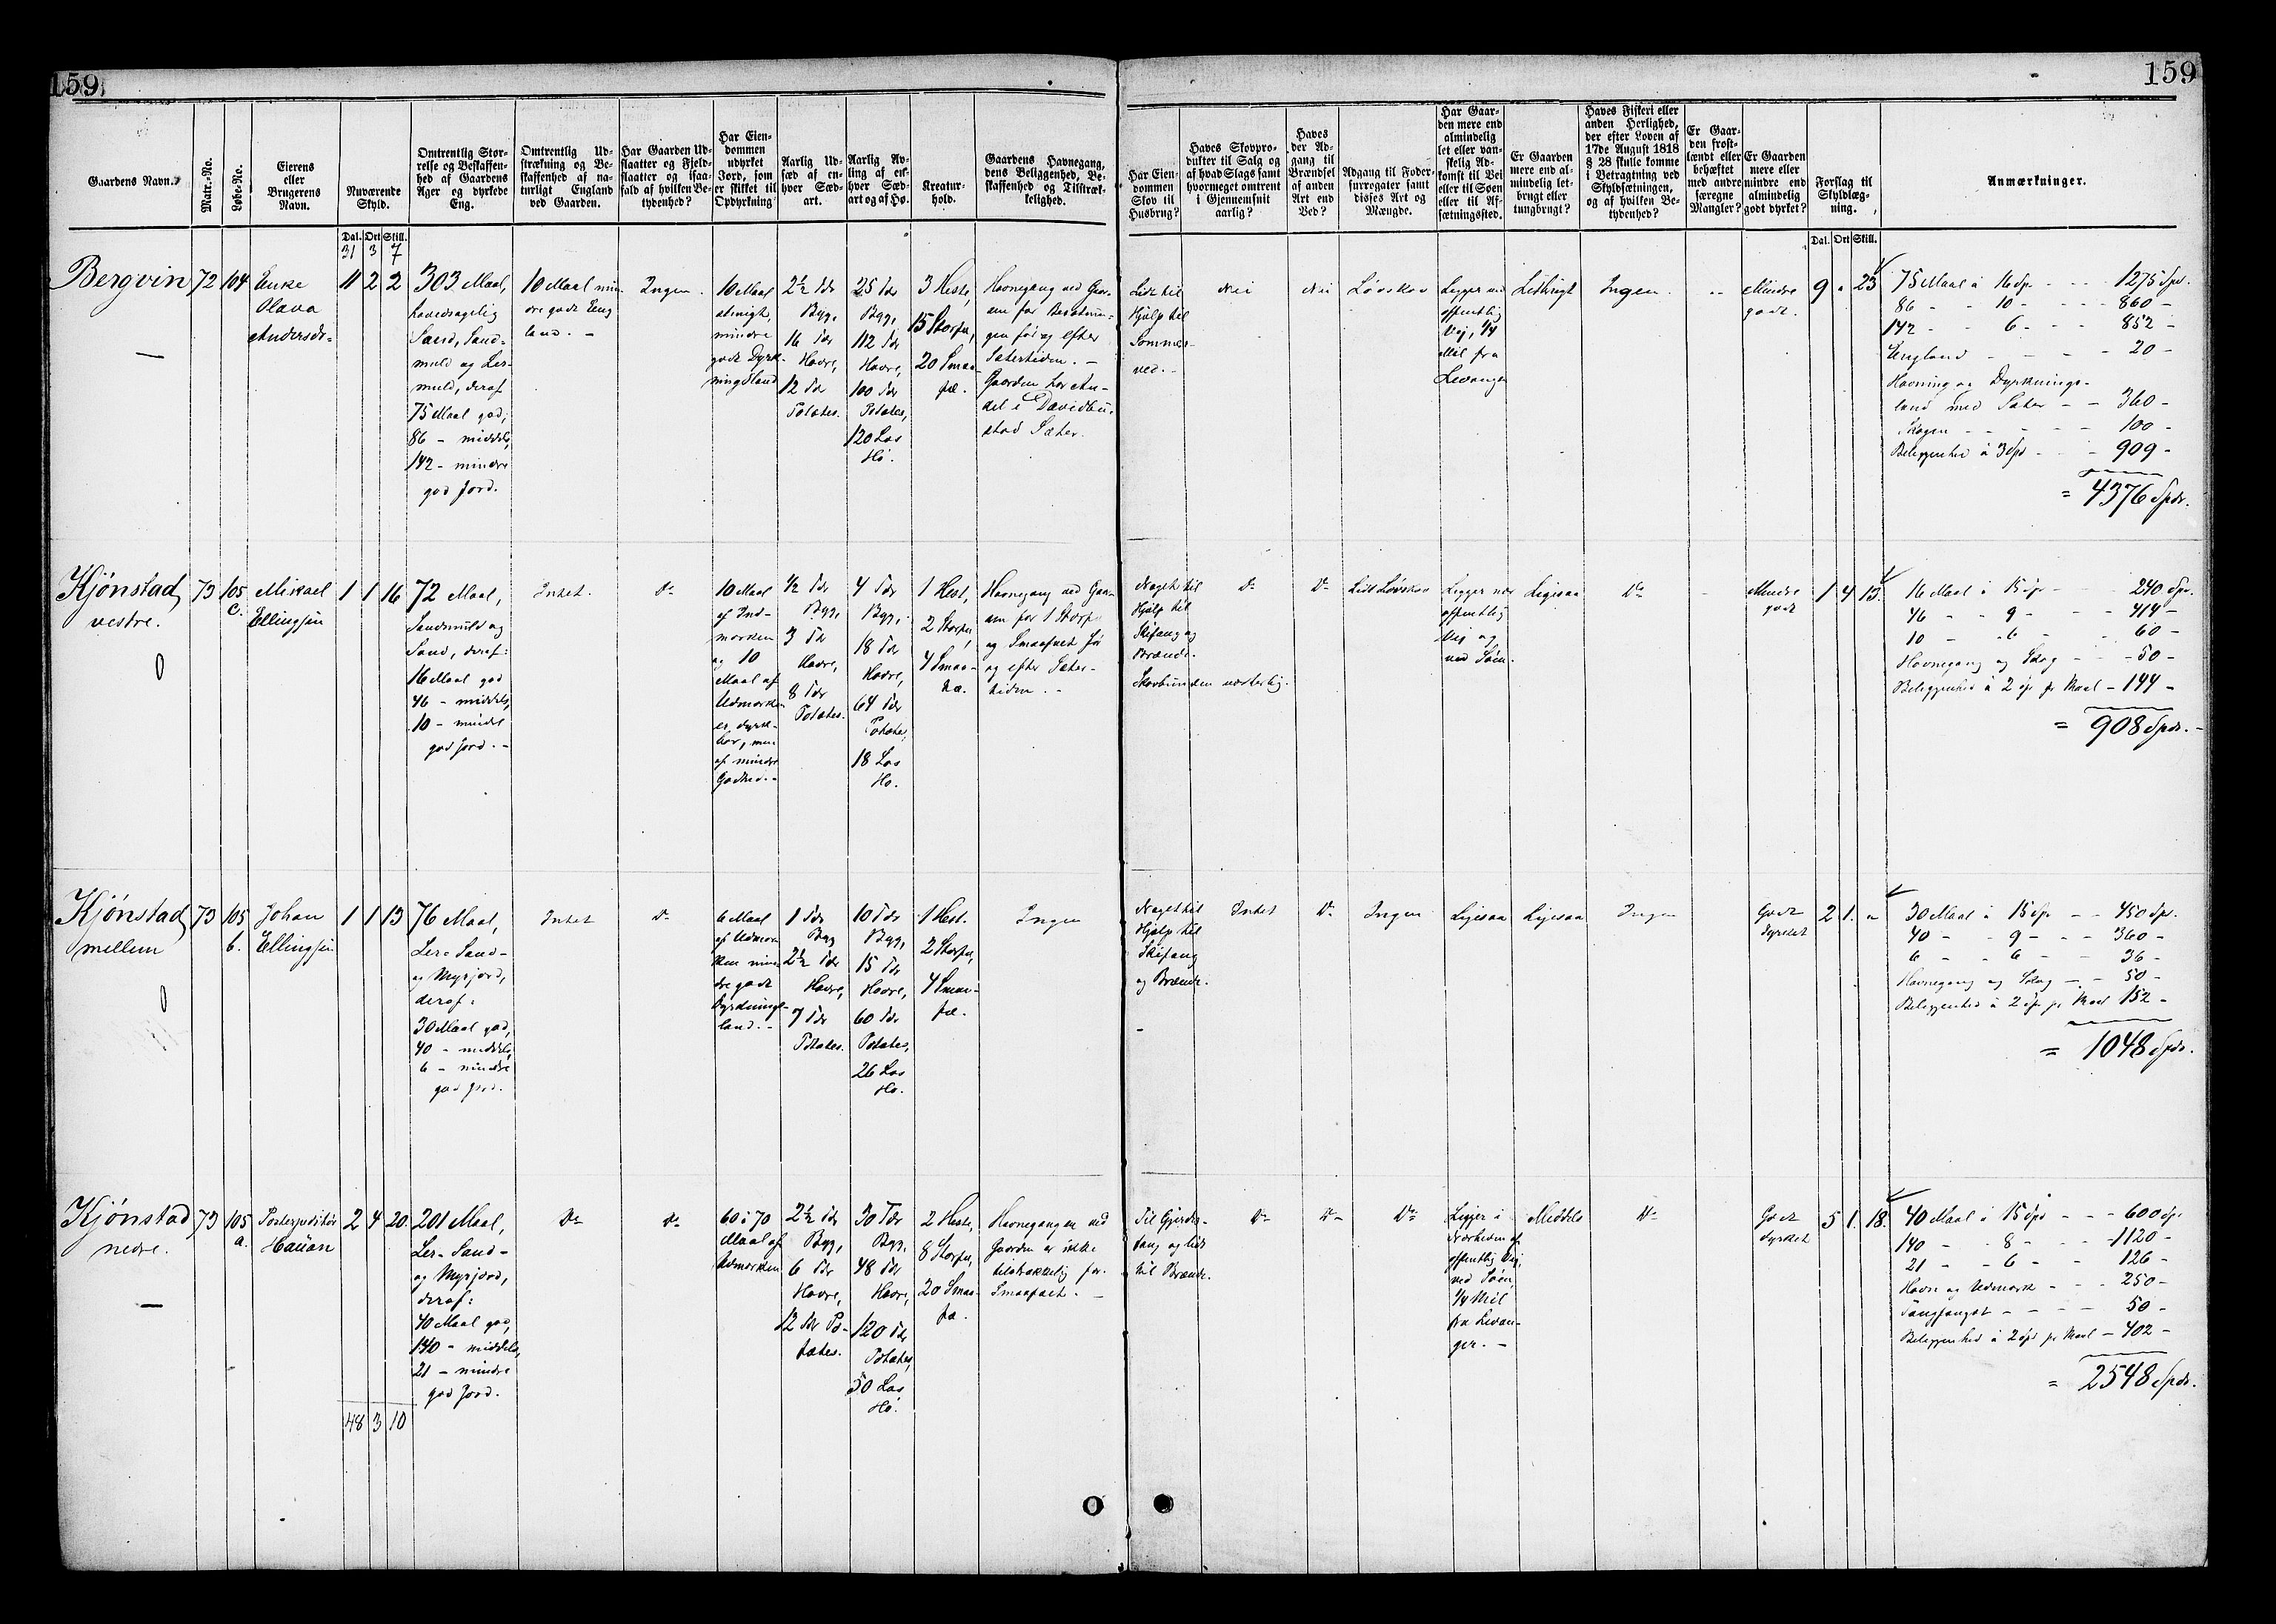 159
159
Gaardens Navn.
Matr.-No.
Løbe-No.
Eierens
eller
Brugerens
Navn.
Nuværende
Skyld.
Omtrentlig Stør-
relse og Beskaffen-
hed af Gaardens
Ager og dyrkede
Eng.
Omtrentlig Ud-
strækning og Be-
skaffenhed af na-
turligt England
ved Gaarden.
Har Gaarden Ud-
slaatter og Fjeld-
slaatter og isaa-
fald af hvilken Be-
tydenhed?
Har Eien-
dommen
udyrket
Jord, som
er skikket til
Opdyrkning?
Aarlig Ud-
sæd af en-
hver Sæd-
art.
Aarlig Av-
ling af en-
hver Sæd-
art og af Hø.
Kreatur-
hold.
Gaardens Havnegang,
dens Beliggenhed, Be-
skaffenhed og Tilstræk-
kelighed.
Har Eien-
dommen
Skov til
Husbrug?
Haves Skovpro-
dukter til Salg og
af hvad Slags samt
hvormeget omtrent
i Gjennemsnit
aarlig?
Haves
der Ad-
gang til
Brændsel
af anden
Art end
Ved?
Adgang til Foder-
surrogater samt
disses Art og
Mængde.
Har Gaar-
den mere end
almindelig
let eller van-
skelig Ad-
komst til Vei
eller til Søen
eller til Af-
sætningssted.
Er Gaarden
mere end al-
mindelig let-
brugt eller
tungbrugt?
Haves Fiskeri eller
anden Herlighed,
der efter Loven af
17de August 1818
§ 28 skulle komme
i Betragtning ved
Skyldsætningen,
og af hvilken Be-
tydenhed?
Er Gaar-
den frost-
lændt eller
behæftet
med andre
særegne
Mangler?
Er Gaarden
mere eller
mindre end
almindelig
godt dyrket?
Forslag til
Skyldlæg-
ning.
Anmærkninger.
Dal. Ort Skill.
31 3 7
Dal. Ort Skill.
Bergvin
72
104
Enke
Olava
Andersdr-
11 2 2
303 Maal,
hovedsagelig
Sand, Sand-
muld og Ler-
muld, deraf
75 Maal god,
86 - middels,
142 - mindre
god Jord.
10 Maal min-
dre godt Eng
land. -
Ingen.
10 Maal
almigt,
mindre
godt Dyrk-
ningsland
2½ Tdr
Byg,
16 Tdr
Havre,
12 Tdr
Potetes.
25 Tdr
Byg,
112 Tdr
Havre,
100 Tdr
Potetes,
120 Las
Hø.
3 Heste,
15 Storfæ,
20 Smaa-
fæ.
Havnegang ved Gaar-
en for Besætnin-
gen før og efter
Sætertiden. -
Gaarden har An-
del i Davidbu-
stad Sæter.
Lidt til
Hjælp til
Sommer-
ved. -
Nei
Nei
Løvskov
Ligger ved
offentlig
Vej, ¼
Mil fra
Levanger
Letbrugt
Ingen.
Mindre
godt.
9 " 23
75 Maal à 16 Sp. - - - 1275 Spd.
86 - - 10 - - - - 860 -
142 - - 6 - - - 852 -
England - - - - 20 -
Havning og Dyrknings-
land med Sæter - - 360 -
Skogen - - - - - 100 -
Beliggenhed à 3 Spd - - - 909 -
= 4376 Spdr.
Kjönstad
vestre.
73
105
c.
Mikael
Ellingsen
1 1 16
72 Maal,
Sandmuld og
Sand, deraf:
16 Maal god
46 - middels,
10 - mindre
god Jord. -
Intet.
Do
10 Maal
af Ind-
marken
og 10
Maal af
Udmarken
er dyrk-
bar, men
af mindre
Godhed. -
½ Tdr
Byg,
3 Tdr
Havre,
8 Tdr
Potetes.
4 Tdr
Byg,
18 Tdr
Havre,
64 Tdr
Potetes,
18 Las
Hø.
1 Hest,
2 Storfæ,
4 Smaa-
fæ.
Havnegang ved Gaar-
en for 1 Storf-
og Smaafæet før
og efter Sæter-
tiden. -
Noget til
Hjælp til
Skifang og
Brænde.
Skovbunden næsten lig.
Do
Do
Lidt Løvskov
Ligger ved
offentlig
Vej og
ved Søen.
Ligesaa
Do
Mindre
godt
1 4 13.
16 Maal à 15 Sp - - - 240 Spd.
46 - - 9 - - - 414 -
10 - - 6 - - 60 -
Havnegang og Skog - - - 50 -
Beliggenhed à 2 Sp pr Maal - 144 -
= 908 Spdr. -
Kjönstad
mellem
73
105
b.
Johan
Ellingsen
1 1 13
76 Maal,
Ler- Sand-
og Myrjord,
deraf:
30 Maal god,
40 - middels,
6 - mindre
god Jord.
Intet
Do
6 Maal
af Udmar-
ken min-
dre godt
Dyrknings-
land. -
1 Tdr
Byg
2½ Tdr
Havre,
7 Tdr
Potetes.
10 Tdr
Byg,
15 Tdr
Havre,
60 Tdr
Potetes,
26 Las
Hø.
1 Hest.
2 Storfæ,
4 Smaa-
fæ.
Ingen
Noget til
Hjælp til
Skifang
og Brænde.
Intet
Do
Ingen
Ligesaa
Ligesaa
Ingen
Godt
dyrket
2 1. "
30 Maal à 15 Sp - - 450 Sp.
40 - - 9 - - - 360 -
6 - - 6 - - 36 -
Havnegang og Skog - - 50 -
Beliggenhed à 2 Sp pr Maal 152 -
= 1048 Spdr.
Kjönstad
nedre.
73
105
a.
Postexpeditör
Hauan
2 4 20.
201 Maal,
Ler- Sand-
og Myrjord,
deraf:
40 Maal god,
140 - middels,
21 - mindre
god Jord.
Do
Do
60 à 70
Maal af
Udmarken
2½ Tdr
Byg,
6 Tdr
Havre,
12 Tdr Po-
tetes.
30 Tdr
Byg,
48 Tdr
Havre,
120 Tdr
Potetes,
50 Las
Hø.
2 Heste,
8 Storfæ,
20 Smaa-
fæ.
Havnegangen ved
Gaarden er ikke
tilstrækkelig for
Smaafæet. -
Til Gjerdes-
fang og lidt
til Brænde.
Do
Do
Do
Ligger i
Nærheden af
offentlig Vej,
ved Søen,
¼ Mil
fra Levan-
ger. -
Middels
Do
Godt
dyrket
5 1. 18.
40 Maal à 15 Spd - - - 600 Spd
140 - - 8 - - - 1120 -
21 - - 6 - - 126 -
Havn og Udmark - - - 250 -
Tangfangst - - - - 50 -
Beliggenhed à 2 Spd pr Maal - 402 -
= 2548 Spdr.
48 3 10